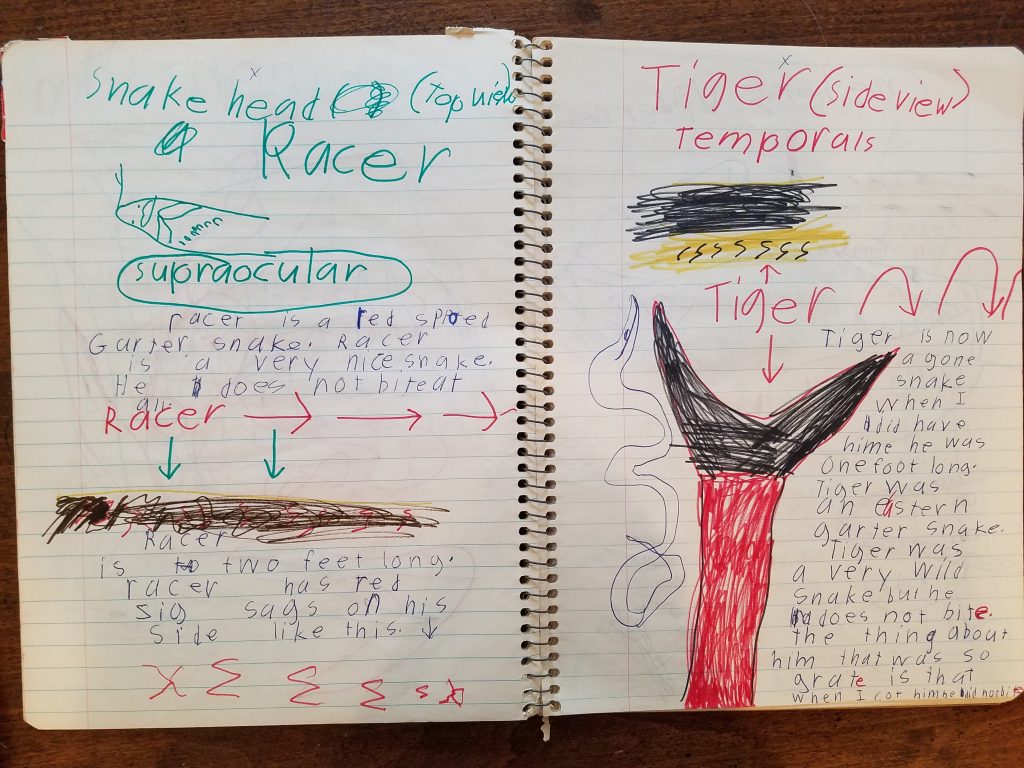 snake head (top view)
Racer
supraocular
racer is a red spoted
Garter snake. Racer
is a very nice snake.
He does not biteat
all.
Racer
Racer
is two feet long.
racer has red
sig sags on his
side like this.
Tiger (side view)
Temporals
Tiger
Tiger is now
a gone
snake
when I
did have
hime he was
one foot long.
Tiger was
an eastern
garter snake.
Tiger was
a very wild
snake but he
does not bite.
the thing about
him that was so
grate is that
when I cot him he did not bite